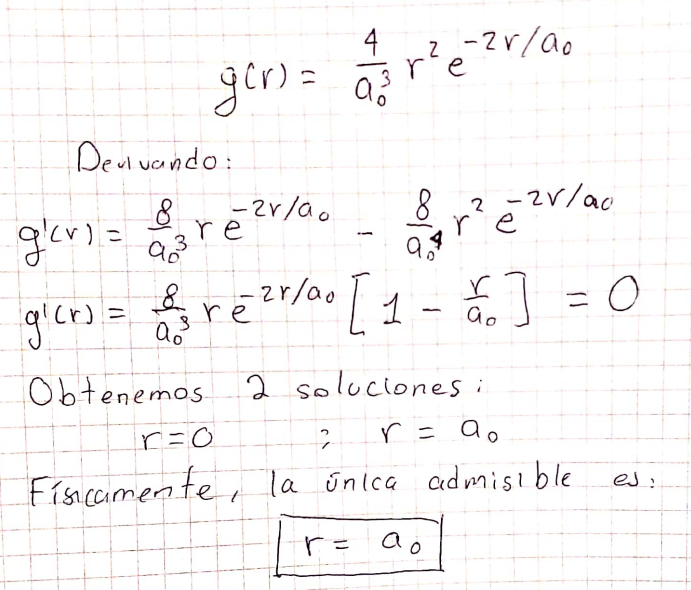 g(r) = 4/a₀³ r² e^(-2r/a₀)
Derivando:
g'(r) = 8/a₀³ r e^(-2r/a₀) - 8/a₀⁴ r² e^(-2r/a₀)
g'(r) = 8/a₀³ r e^(-2r/a₀) [1 - r/a₀] = 0
Obtenemos 2 soluciones:
r=0 ; r = a₀
Físicamente, la única admisible es:
r = a₀